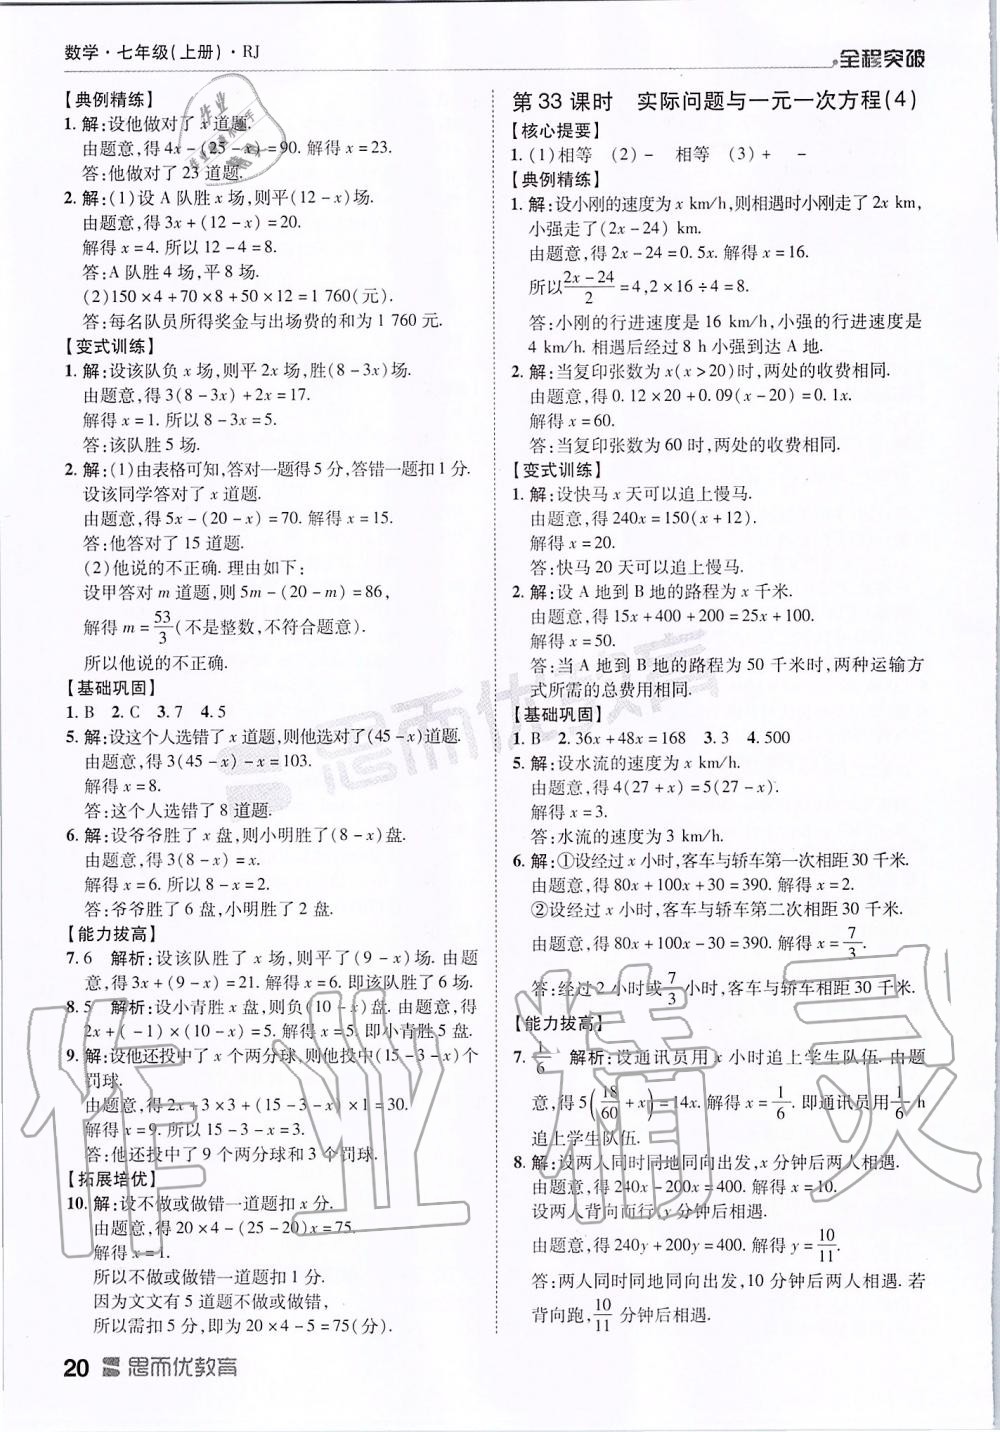 数学·七年级(上册)·RJ
全程突破
【典例精练】
1. 解:设他做对了 x 道题.
由题意,得 4x-(25-x)=90. 解得 x=23.
答:他做对了 23 道题.
2. 解:(1)设 A 队胜 x 场,则平(12-x)场.
由题意,得 3x+(12-x)=20.
解得 x=4. 所以 12-4=8.
答:A 队胜 4 场,平 8 场.
(2)150×4+70×8+50×12=1 760(元).
答:每名队员所得奖金与出场费的和为 1 760 元.
【变式训练】
1. 解:设该队负 x 场,则平 2x 场,胜(8-3x)场.
由题意,得 3(8-3x)+2x=17.
解得 x=1. 所以 8-3x=5.
答:该队胜 5 场.
2. 解:(1)由表格可知,答对一题得 5 分,答错一题扣 1 分.
设该同学答对了 x 道题.
由题意,得 5x-(20-x)=70. 解得 x=15.
答:他答对了 15 道题.
(2)他说的不正确. 理由如下:
设甲答对 m 道题,则 5m-(20-m)=86,
解得 m=53/3(不是整数,不符合题意).
所以他说的不正确.
【基础巩固】
1. B 2. C 3. 7 4. 5
5. 解:设这个人选错了 x 道题,则他选对了(45-x)道题.
由题意,得 3(45-x)-x=103.
解得 x=8.
答:这个人选错了 8 道题.
6. 解:设爷爷胜了 x 盘,则小明胜了(8-x)盘.
由题意,得 3(8-x)=x.
解得 x=6. 所以 8-x=2.
答:爷爷胜了 6 盘,小明胜了 2 盘.
【能力拔高】
7. 6 解析:设该队胜了 x 场,则平了(9-x)场. 由题
意,得 3x+(9-x)=21. 解得 x=6. 即该队胜了 6 场.
8. 5 解析:设小青胜 x 盘,则负(10-x)盘. 由题意,得
2x+(-1)×(10-x)=5. 解得 x=5. 即小青胜 5 盘.
9. 解:设他还投中了 x 个两分球,则他投中(15-3-x)个
罚球.
由题意,得 2x+3×3+(15-3-x)×1=30.
解得 x=9. 所以 15-3-x=3.
答:他还投中了 9 个两分球和 3 个罚球.
【拓展培优】
10. 解:设不做或做错一道题扣 x 分.
由题意,得 20×4-(25-20)x=75.
解得 x=1.
所以不做或做错一道题扣 1 分.
因为文文有 5 道题不做或做错,
所以需扣 5 分,即为 20×4-5=75(分).
第 33 课时 实际问题与一元一次方程(4)
【核心提要】
1. (1)相等 (2)- 相等 (3)+ -
【典例精练】
1. 解:设小刚的速度为 x km/h,则相遇时小刚走了 2x km,
小强走了(2x-24) km.
由题意,得 2x-24=0.5x. 解得 x=16.
所以(2x-24)/2=4,2×16÷4=8.
答:小刚的行进速度是 16 km/h,小强的行进速度是
4 km/h. 相遇后经过 8 h 小强到达 A 地.
2. 解:当复印张数为 x(x>20)时,两处的收费相同.
由题意,得 0.12×20+0.09(x-20)=0.1x.
解得 x=60.
答:当复印张数为 60 时,两处的收费相同.
【变式训练】
1. 解:设快马 x 天可以追上慢马.
由题意,得 240x=150(x+12).
解得 x=20.
答:快马 20 天可以追上慢马.
2. 解:设 A 地到 B 地的路程为 x 千米.
由题意,得 15x+400+200=25x+100.
解得 x=50.
答:当 A 地到 B 地的路程为 50 千米时,两种运输方
式所需的总费用相同.
【基础巩固】
1. B 2. 36x+48x=168 3. 3 4. 500
5. 解:设水流的速度为 x km/h.
由题意,得 4(27+x)=5(27-x).
解得 x=3.
答:水流的速度为 3 km/h.
6. 解:①设经过 x 小时,客车与轿车第一次相距 30 千米.
由题意,得 80x+100x+30=390. 解得 x=2.
②设经过 x 小时,客车与轿车第二次相距 30 千米.
由题意,得 80x+100x-30=390. 解得 x=7/3.
答:经过 2 小时或7/3小时,客车与轿车相距 30 千米.
【能力拔高】
7. 1/6 解析:设通讯员用 x 小时追上学生队伍. 由题
意,得 5(18/60+x)=14x. 解得 x=1/6. 即通讯员用1/6 h
追上学生队伍.
8. 解:设两人同时同地同向出发,x 分钟后两人相遇.
由题意,得 240x-200x=400. 解得 x=10.
设两人背向而行,y 分钟后相遇.
由题意,得 240y+200y=400. 解得 y=10/11.
答:两人同时同地同向出发,10 分钟后两人相遇. 若
背向跑,10/11 分钟后相遇.
20 思而优教育
思而优教育
作业精灵